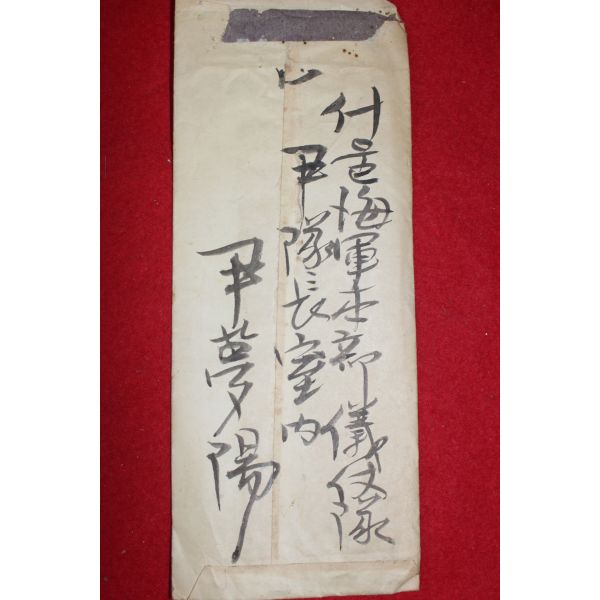 서울海軍本部儀仗隊
尹隊長室内
尹夢陽